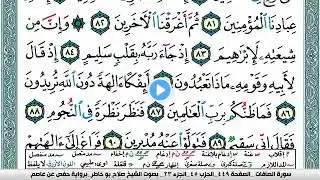 عِبَادِنَا الْمُؤْمِنِينَ ٨١ ثُمَّ أَغْرَقْنَا الْآخَرِينَ ٨٢ ۞ وَإِنَّ مِن
شِيعَتِهِ لَإِبْرَاهِيمَ ٨٣ إِذْ جَاءَ رَبَّهُ بِقَلْبٍ سَلِيمٍ ٨٤ إِذْ قَالَ
لِأَبِيهِ وَقَوْمِهِ مَاذَا تَعْبُدُونَ ٨٥ أَئِفْكًا آلِهَةً دُونَ اللَّهِ تُرِيدُونَ
٨٦ فَمَا ظَنُّكُم بِرَبِّ الْعَالَمِينَ ٨٧ فَنَظَرَ نَظْرَةً فِي النُّجُومِ ٨٨
فَقَالَ إِنِّي سَقِيمٌ ٨٩ فَتَوَلَّوْا عَنْهُ مُدْبِرِينَ ٩٠ فَرَاغَ إِلَى آلِهَتِهِمْ
سورة الصافات - الصفحة ٤٤٩ - الحزب ٤٥ - الجزء ٢٣ - بصوت الشيخ صلاح بو خاطر - برواية حفص عن عاصم